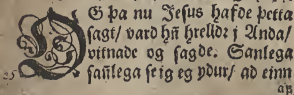 OG þa nu Jesus hafde þetta
sagt/ vard hñ hrelldr j Anda/
vitnade og sagde. Sanlega
sañlega seig eg ydur/ ad einn
25
aß